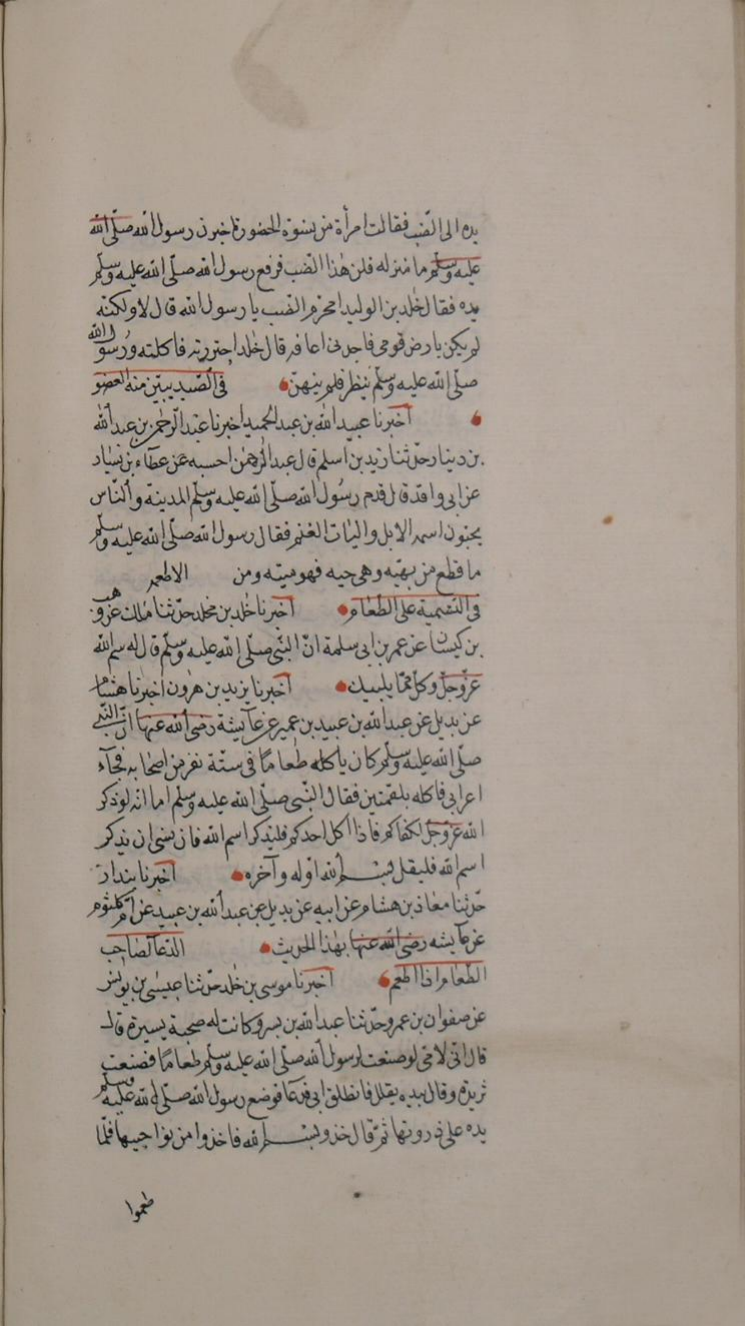 يده الى الضب فقالت امرأة من نسوة الحضور اخبرن رسول الله صلى الله
عليه وسلم ما قدمتن له قلن هذا الضب فرفع رسول الله صلى الله عليه وسلم
يده فقال خلد بن الوليد احرم الضب يا رسول الله قال لا ولكنه
لم يكن بارض قومي فاجدني اعافه قال خلد اجتررته فاكلته ورسول الله
صلى الله عليه وسلم ينظر فلم ينهن في الصيد يبين منه العضو
اخبرنا عبيد الله بن عبد الحميد اخبرنا عبد الرحمن بن عبد الله
بن دينار حدثنا زيد بن اسلم قال عبد الرحمن احسبه عن عطاء بن يساد
عن ابي واقد قال قدم رسول الله صلى الله عليه وسلم المدينة والناس
يجبون اسمه الابل واليات الغنم فقال رسول الله صلى الله عليه وسلم
ما قطع من بهيه وهي حيه فهو ميته ومن الاطعمه
في التسمية على الطعام اخبرنا خلد بن مخلد حدثنا مالك عن وهب
بن كيسان عن عمر بن ابي سلمة ان النبي صلى الله عليه وسلم قال له سم الله
عز وجل وكل مما يليك اخبرنا يزيد بن هرون اخبرنا هشام
عن بديل عن عبد الله بن عبيد بن عمير عن عايشة رضي الله عنها ان النبي
صلى الله عليه وسلم كان ياكله طعاما في ستة نفر من اصحابه فجآء
اعرابي فاكله بلقمتين فقال النبي صلى الله عليه وسلم اما انه لو ذكر
الله عز وجل لكفاكم فاذا اكل احدكم فليذكر اسم الله فان نسي ان يذكر
اسم الله فليقل بسم الله اوله وآخره اخبرنا بندار
حدثنا معاذ بن هشام عن ابيه عن بديل عن عبد الله بن عبيد عن ام كلثوم
عن عايشه رضي الله عنها بهذا الحديث الدعا لصاحب
الطعام اذا اطعم اخبرنا موسى بن خلد حدثنا عيسى بن يونس
عن صفوان بن عمرو حدثنا عبد الله بن بسر وكانت له صحبة يسيرة قال
قال ابي لامي لو صنعت لرسول الله صلى الله عليه وسلم طعاما فصنعت
ثريدة وقال بيده يقلل فانطلق ابي فدعا فوضع رسول الله صلى الله عليه وسلم
يده على ذروتها ثم قال خذو بسم الله فاخذوا من نواجيها فلما
طعموا